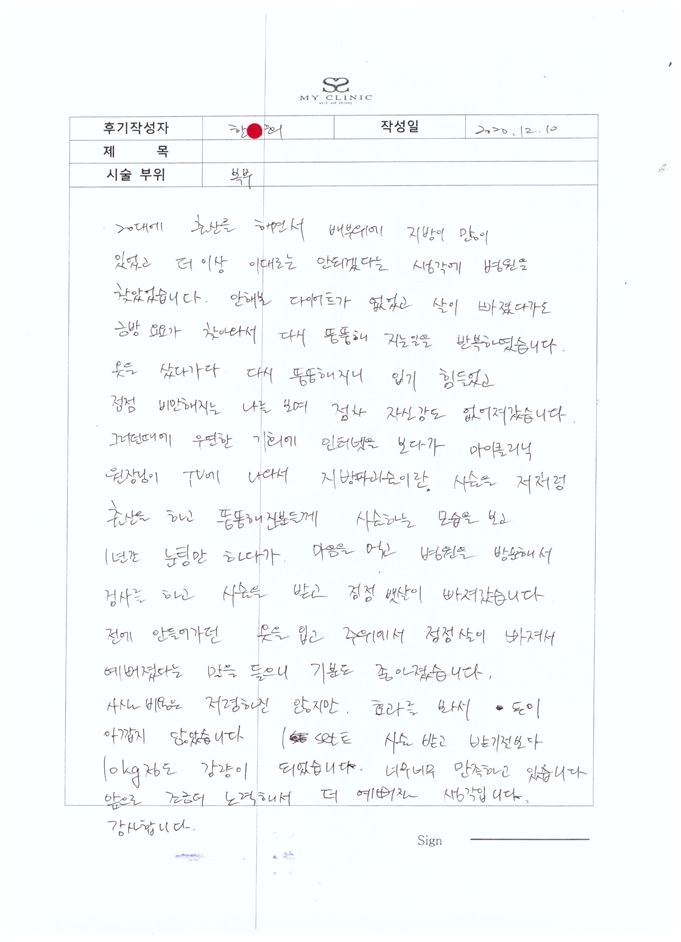 MY CLINIC
후기작성자 한 희 작성일 2020.12.10
제 목
시술 부위 복부
20대에 출산을 하면서 배부위에 지방이 많이
있었고 더 이상 이대로는 안되겠다는 생각에 병원을
찾았었습니다. 안해본 다이어트가 없었고 살이 빠졌다가도
금방 요요가 찾아와서 다시 뚱뚱해 지는일을 반복하였습니다.
옷을 샀다가다 다시 뚱뚱해지니 입기 힘들었고
점점 비만해지는 나를 보며 점차 자신감도 없어져갔습니다.
그러던때에 우연한 기회에 인터넷을 보다가 마이클리닉
원장님이 TV에 나와서 지방파괴술이란 시술을 저처럼
출산을 하고 뚱뚱해진분들께 시술하는 모습을 보고
1년간 눈팅만 하다가 마음을 먹고 병원을 방문해서
검사를 하고 시술을 받고 점점 뱃살이 빠져갔습니다
전에 안들어가던 옷을 입고 주위에서 점점살이 빠져서
예뻐졌다는 말을 들으니 기분도 좋아졌습니다.
사실 비용은 저렴하진 않지만. 효과를 봐서 돈이
아깝지 않았습니다 1 set트 시술 받고 받기전보다
10kg정도 감량이 되었습니다. 너무너무 만족하고 있습니다
앞으로 조금더 노력해서 더 예뻐질 생각입니다.
감사합니다.
Sign